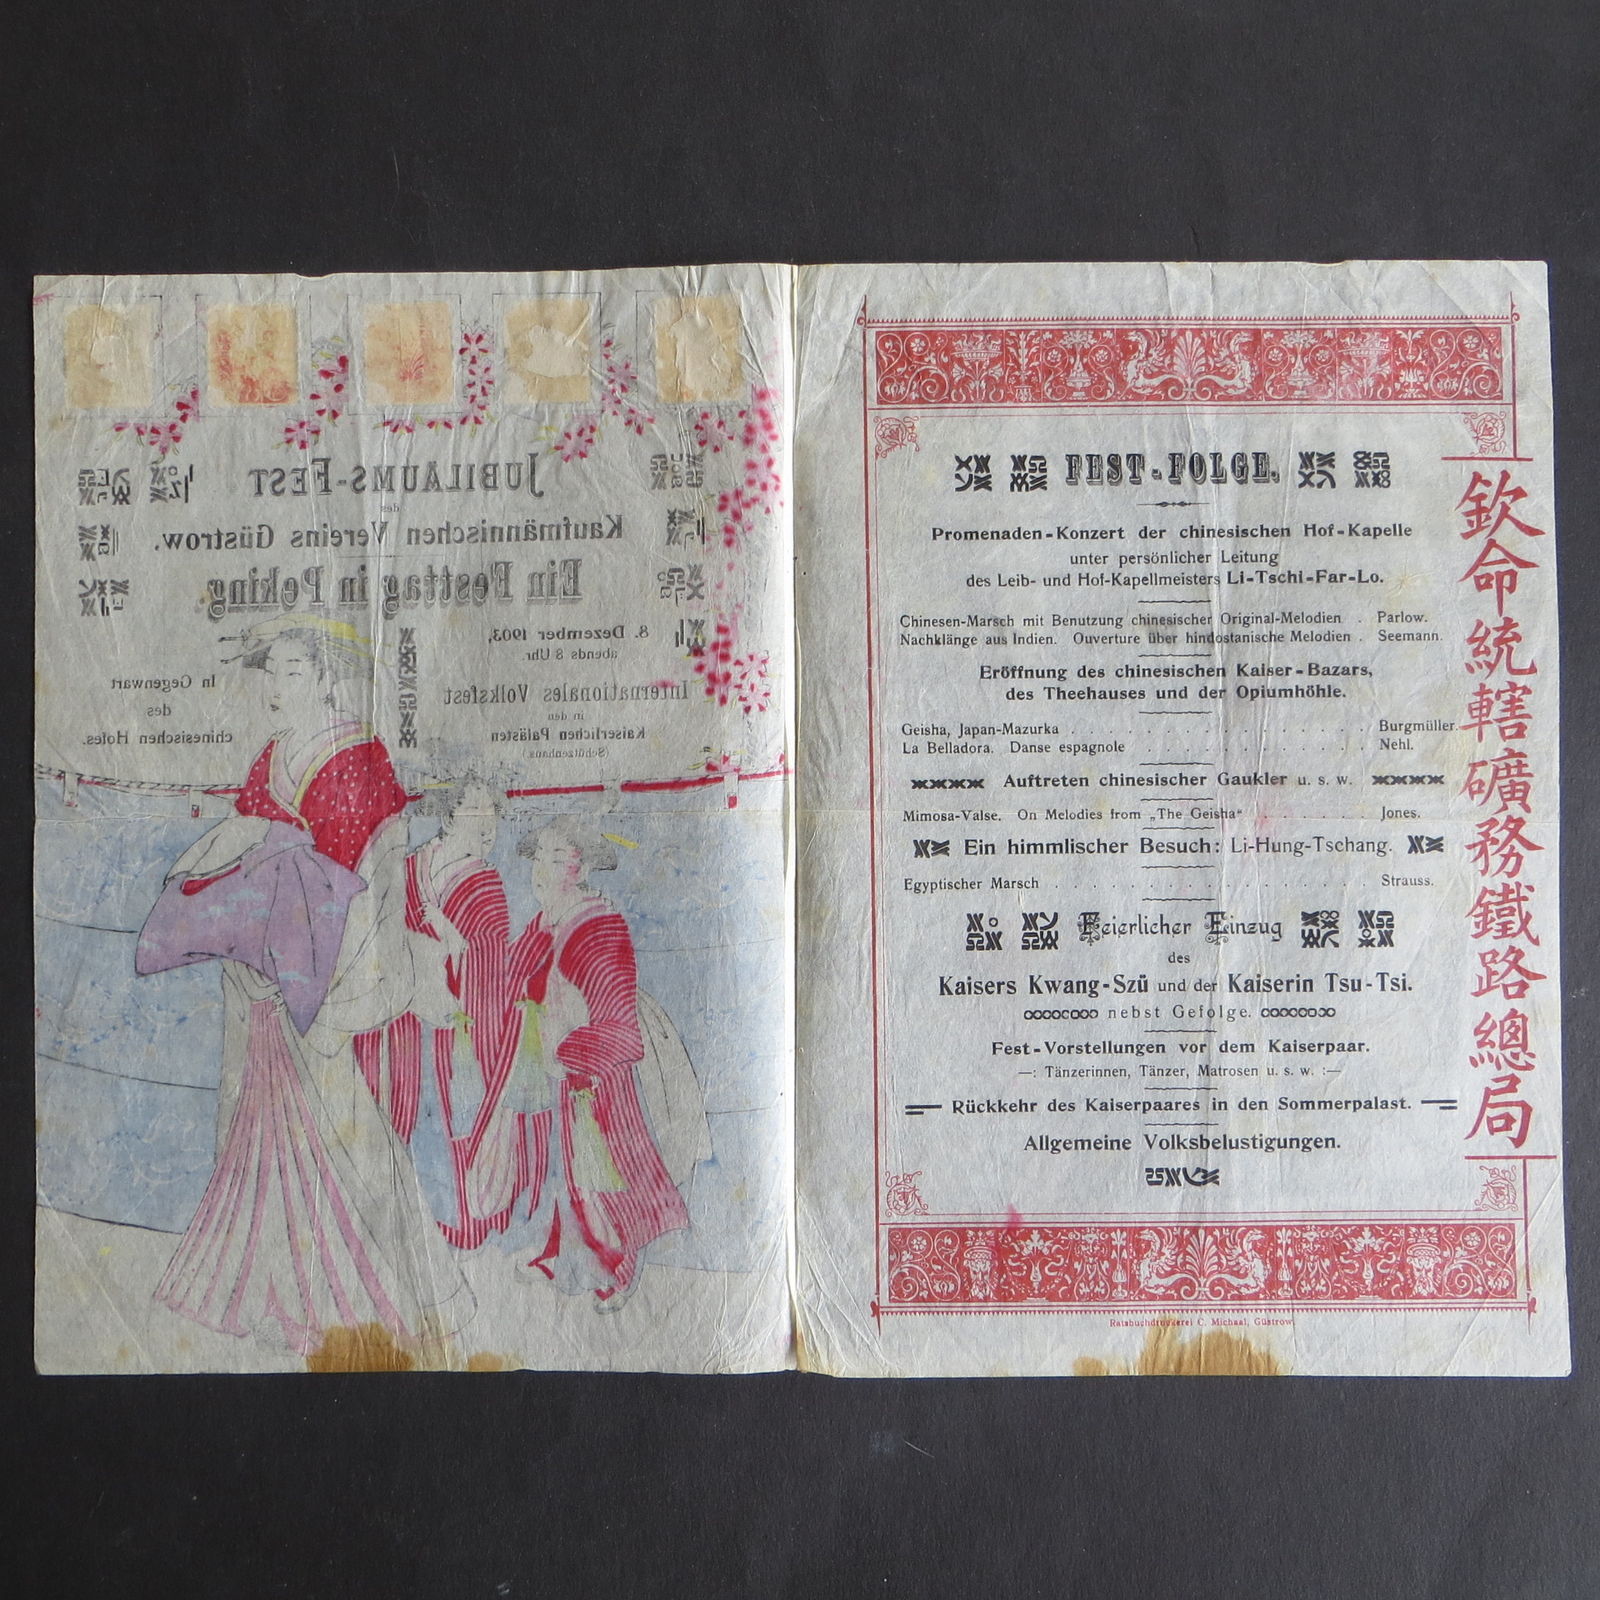 JUBILÄUMS-FEST
des
Kaufmännischen Vereins Güstrow.
Ein Festtag in Peking.
8. Dezember 1903,
abends 8 Uhr.
Internationales Volksfest
in den
Kaiserlichen Palästen
(Schützenhaus.)
In Gegenwart
des
chinesischen Hofes.
FEST-FOLGE.
Promenaden-Konzert der chinesischen Hof-Kapelle
unter persönlicher Leitung
des Leib- und Hof-Kapellmeisters Li-Tschi-Far-Lo.
Chinesen-Marsch mit Benutzung chinesischer Original-Melodien . Parlow.
Nachklänge aus Indien. Ouverture über hindostanische Melodien . Seemann.
Eröffnung des chinesischen Kaiser-Bazars,
des Theehauses und der Opiumhöhle.
Geisha, Japan-Mazurka . . . . . . . . . . . . . . Burgmüller.
La Belladora. Danse espagnole . . . . . . . . . . Nehl.
Auftreten chinesischer Gaukler u. s. w.
Mimosa-Valse. On Melodies from „The Geisha“ . . . . . . Jones.
Ein himmlischer Besuch: Li-Hung-Tschang.
Egyptischer Marsch . . . . . . . . . . . . . . . Strauss.
Feierlicher Einzug
des
Kaisers Kwang-Szü und der Kaiserin Tsu-Tsi.
nebst Gefolge.
Fest-Vorstellungen vor dem Kaiserpaar.
—: Tänzerinnen, Tänzer, Matrosen u. s. w. :—
Rückkehr des Kaiserpaares in den Sommerpalast.
Allgemeine Volksbelustigungen.
欽命統轄礦務鐵路總局
Ratsbuchdruckerei C. Michaal, Güstrow.